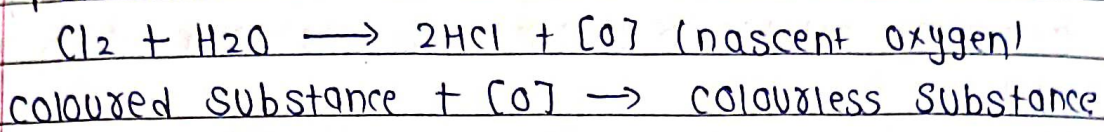 Cl2 + H2O ⟶ 2HCl + [O] (nascent oxygen)
coloured substance + [O] → colourless substance